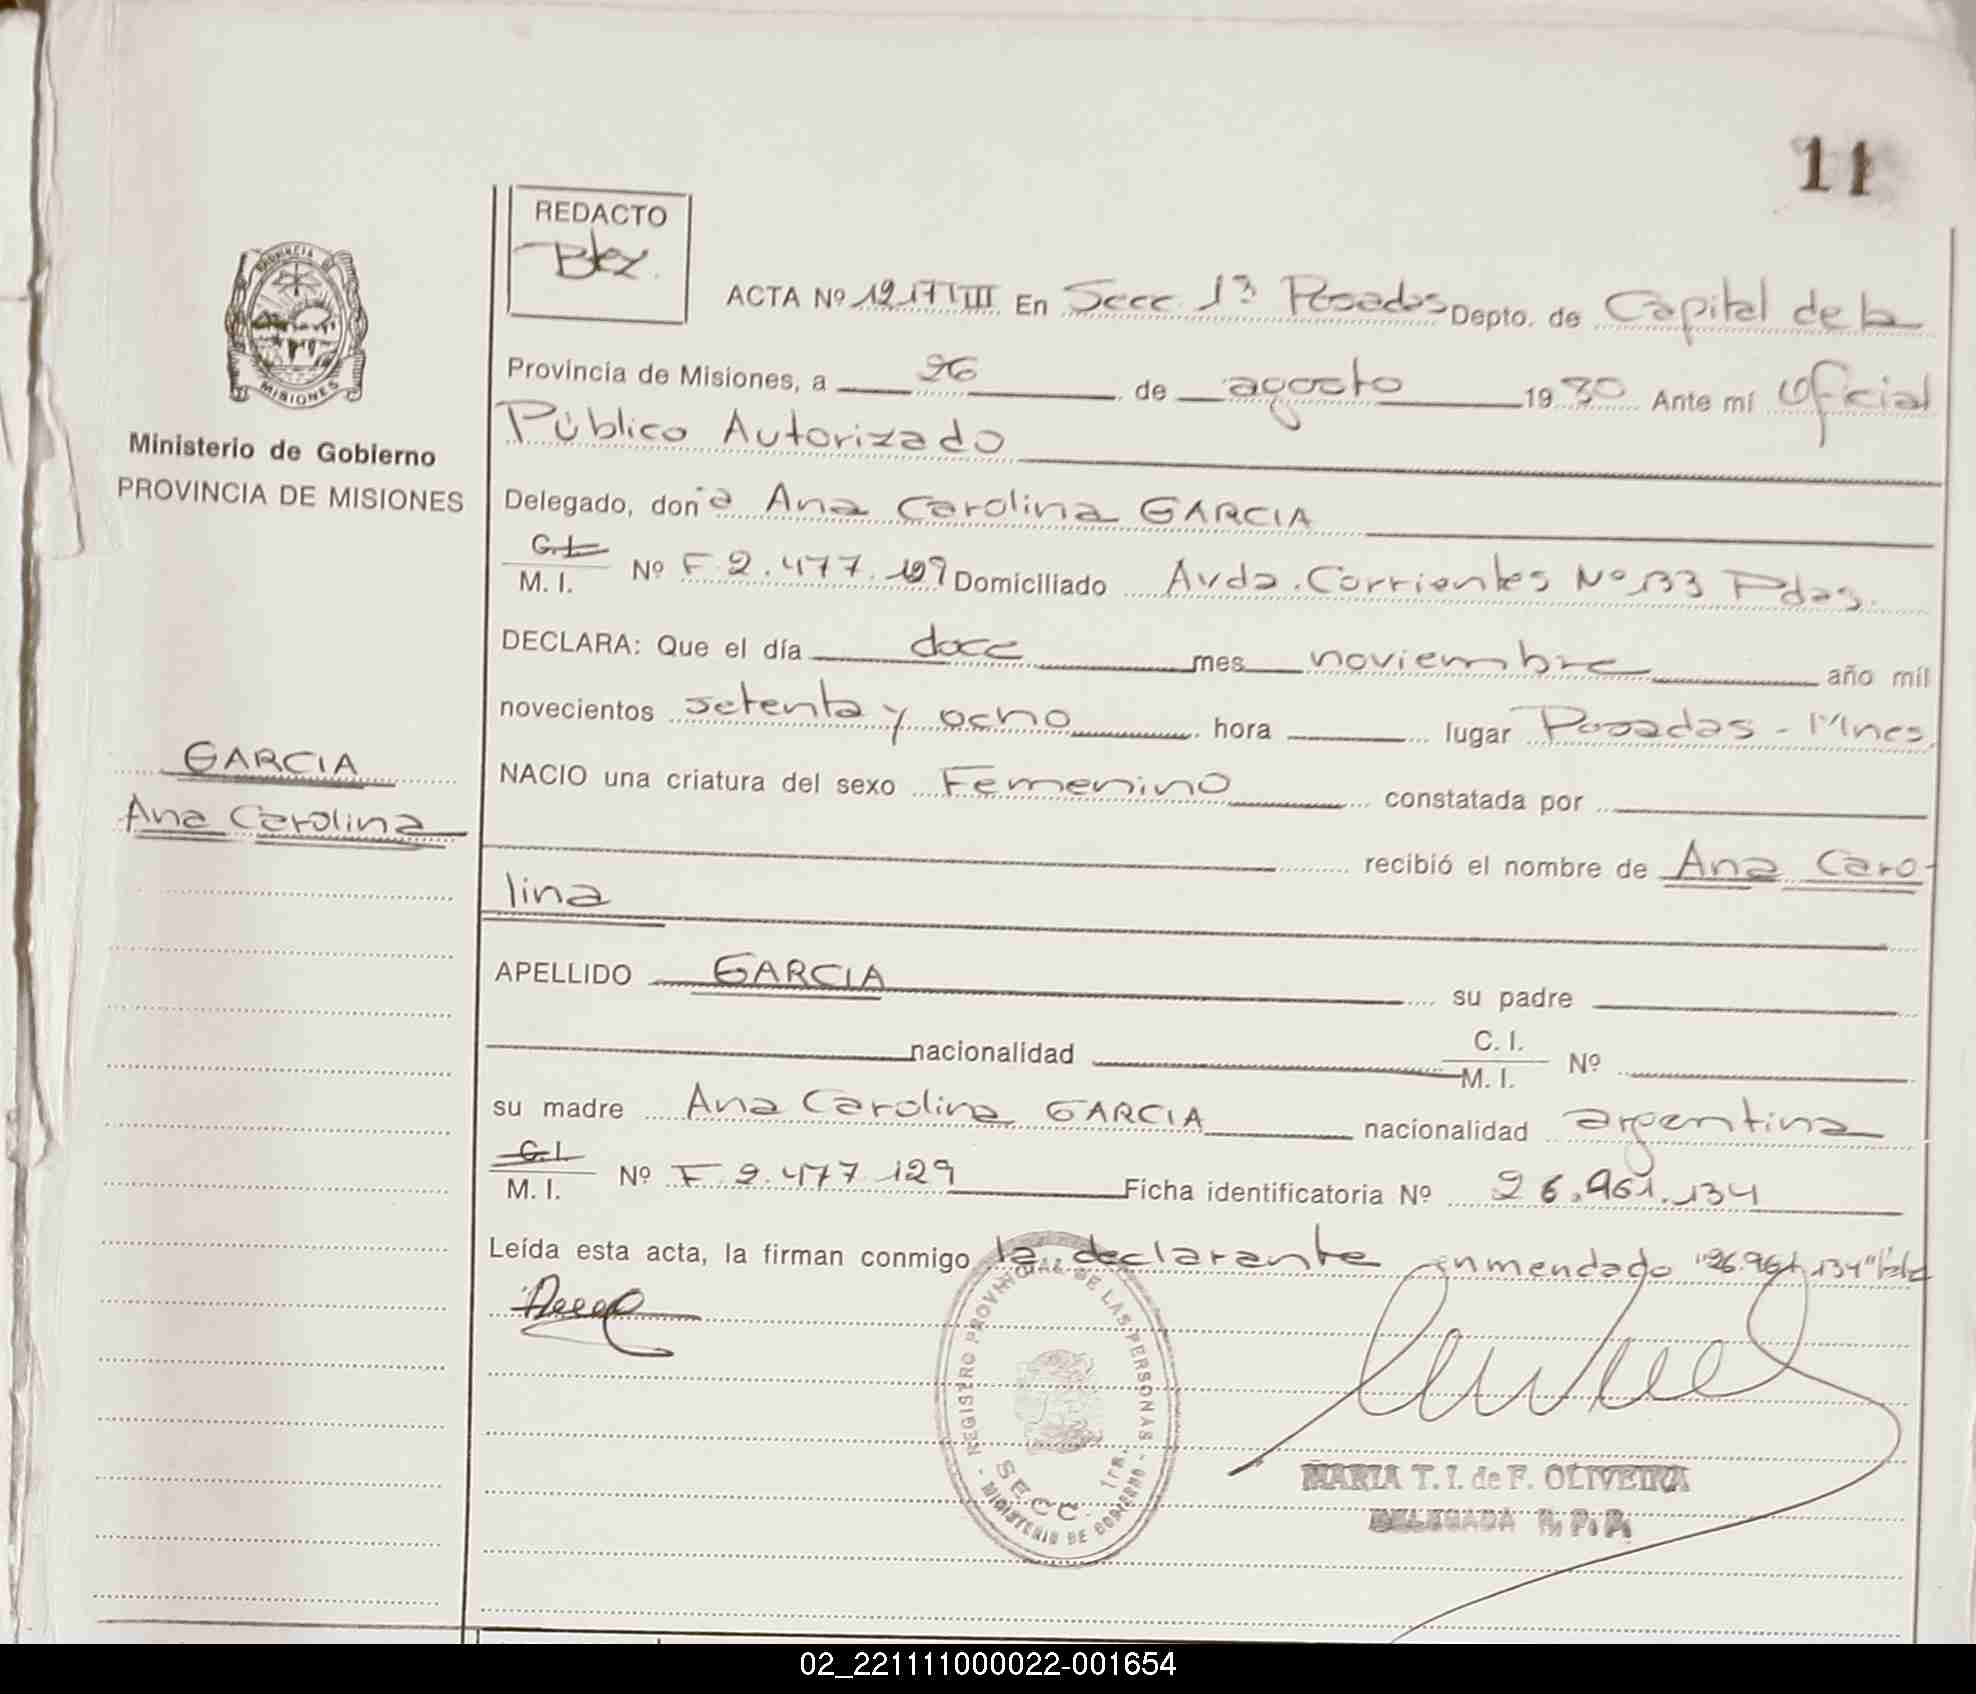 11
REDACTO
ACTA Nº 1217 III En Secc. 1ª Posadas Depto. de Capital de la
Provincia de Misiones, a 26 de agosto 1980 Ante mí Oficial
Público Autorizado
Ministerio de Gobierno
PROVINCIA DE MISIONES
Delegado, doña Ana Carolina GARCIA
C.I. M. I. Nº F 2.477.129 Domiciliado Avda. Corrientes Nº 133 Pdas.
DECLARA: Que el día doce mes noviembre año mil
novecientos setenta y ocho hora lugar Posadas - Mnes.
GARCIA
Ana Carolina
NACIO una criatura del sexo Femenino constatada por
recibió el nombre de Ana Caro-
lina
APELLIDO GARCIA su padre
nacionalidad C. I. M. I. Nº
su madre Ana Carolina GARCIA nacionalidad argentina
C.I. M. I. Nº F 2.477.129 Ficha identificatoria Nº 26.961.134
Leída esta acta, la firman conmigo la declarante enmendado "26.961.134"
REGISTRO PROVINCIAL DE LAS PERSONAS - MINISTERIO DE GOBIERNO -
SECC. 1ra.
MARIA T. I. de F. OLIVEIRA
DELEGADA R. P. P.
02_221111000022-001654